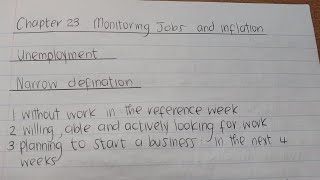 Chapter 23 Monitoring Jobs and inflation
Unemployment
Narrow defination
1 without work in the reference week
2 willing, able and actively looking for work
3 planning to start a business in the next 4
weeks